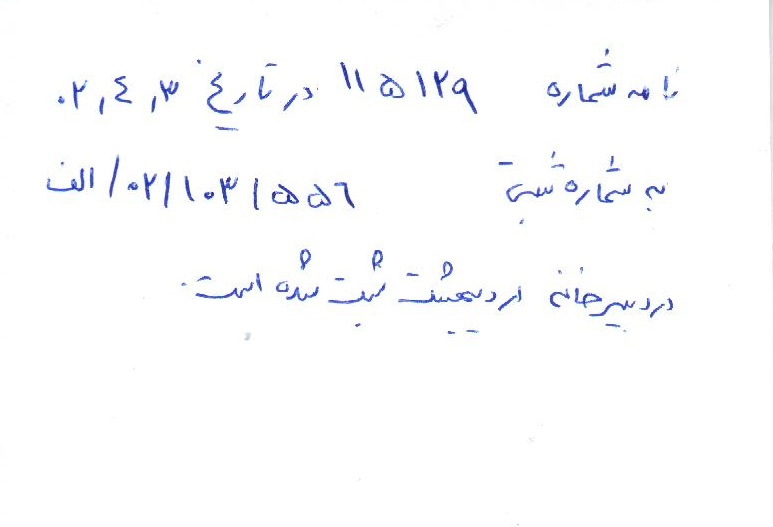 نامه شماره ۱۱۵۱۲۹ در تاریخ ۰۲,۴,۳
به شماره ثبت ۵۵۶/۱۰۳/۰۲/الف
در دبیرخانه اردیبهشت ثبت شده است.